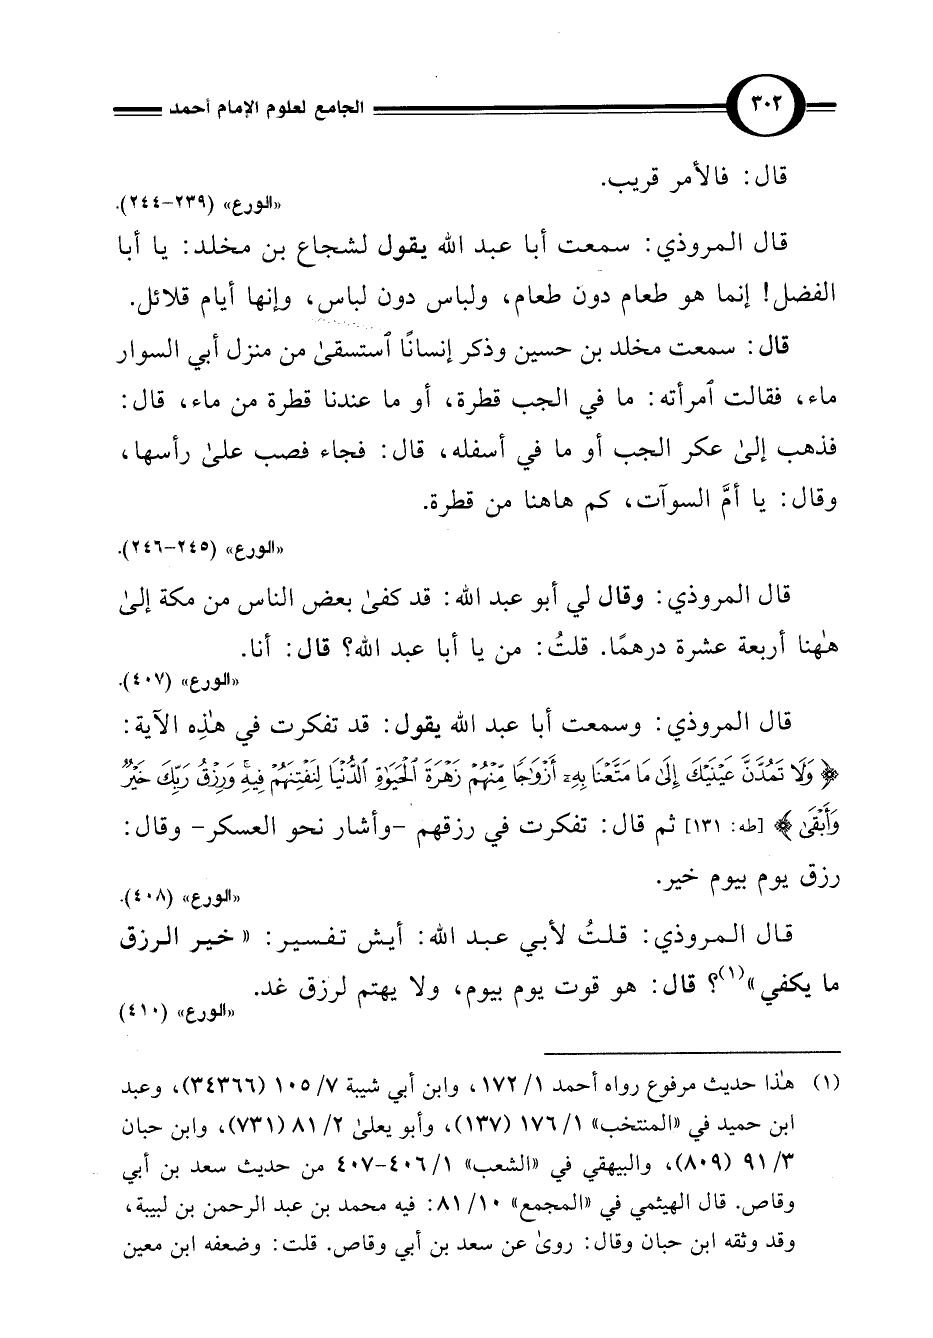 ٣٠٢ الجامع لعلوم الإمام أحمد
قال: فالأمر قريب.
«الورع» (٢٣٩-٢٤٤).
قال المروذي: سمعت أبا عبد الله يقول لشجاع بن مخلد: يا أبا
الفضل! إنما هو طعام دون طعام، ولباس دون لباس، وإنها أيام قلائل.
قال: سمعت مخلد بن حسين وذكر إنسانًا ٱستسقىٰ من منزل أبي السوار
ماء، فقالت ٱمرأته: ما في الجب قطرة، أو ما عندنا قطرة من ماء، قال:
فذهب إلىٰ عكر الجب أو ما في أسفله، قال: فجاء فصب علىٰ رأسها،
وقال: يا أمَّ السوآت، كم هاهنا من قطرة.
«الورع» (٢٤٥-٢٤٦).
قال المروذي: وقال لي أبو عبد الله: قد كفىٰ بعض الناس من مكة إلىٰ
هٰهنا أربعة عشرة درهمًا. قلتُ: من يا أبا عبد الله؟ قال: أنا.
«الورع» (٤٠٧).
قال المروذي: وسمعت أبا عبد الله يقول: قد تفكرت في هٰذِه الآية:
﴿وَلَا تَمُدَّنَّ عَيْنَيْكَ إِلَىٰ مَا مَتَّعْنَا بِهِۦٓ أَزْوَٰجًا مِّنْهُمْ زَهْرَةَ ٱلْحَيَوٰةِ ٱلدُّنْيَا لِنَفْتِنَهُمْ فِيهِۚ وَرِزْقُ رَبِّكَ خَيْرٌ
وَأَبْقَىٰ﴾ [طه: ١٣١] ثم قال: تفكرت في رزقهم -وأشار نحو العسكر- وقال:
رزق يوم بيوم خير.
«الورع» (٤٠٨).
قال المروذي: قلتُ لأبي عبد الله: أيش تفسير: «خير الرزق
ما يكفي»(١)؟ قال: هو قوت يوم بيوم، ولا يهتم لرزق غد.
«الورع» (٤١٠)
(١) هٰذا حديث مرفوع رواه أحمد ١/ ١٧٢، وابن أبي شيبة ٧/ ١٠٥ (٣٤٣٦٦)، وعبد
ابن حميد في «المنتخب» ١/ ١٧٦ (١٣٧)، وأبو يعلىٰ ٢/ ٨١ (٧٣١)، وابن حبان
٣/ ٩١ (٨٠٩)، والبيهقي في «الشعب» ١/ ٤٠٦-٤٠٧ من حديث سعد بن أبي
وقاص. قال الهيثمي في «المجمع» ١٠/ ٨١: فيه محمد بن عبد الرحمن بن لبيبة،
وقد وثقه ابن حبان وقال: روىٰ عن سعد بن أبي وقاص. قلت: وضعفه ابن معين